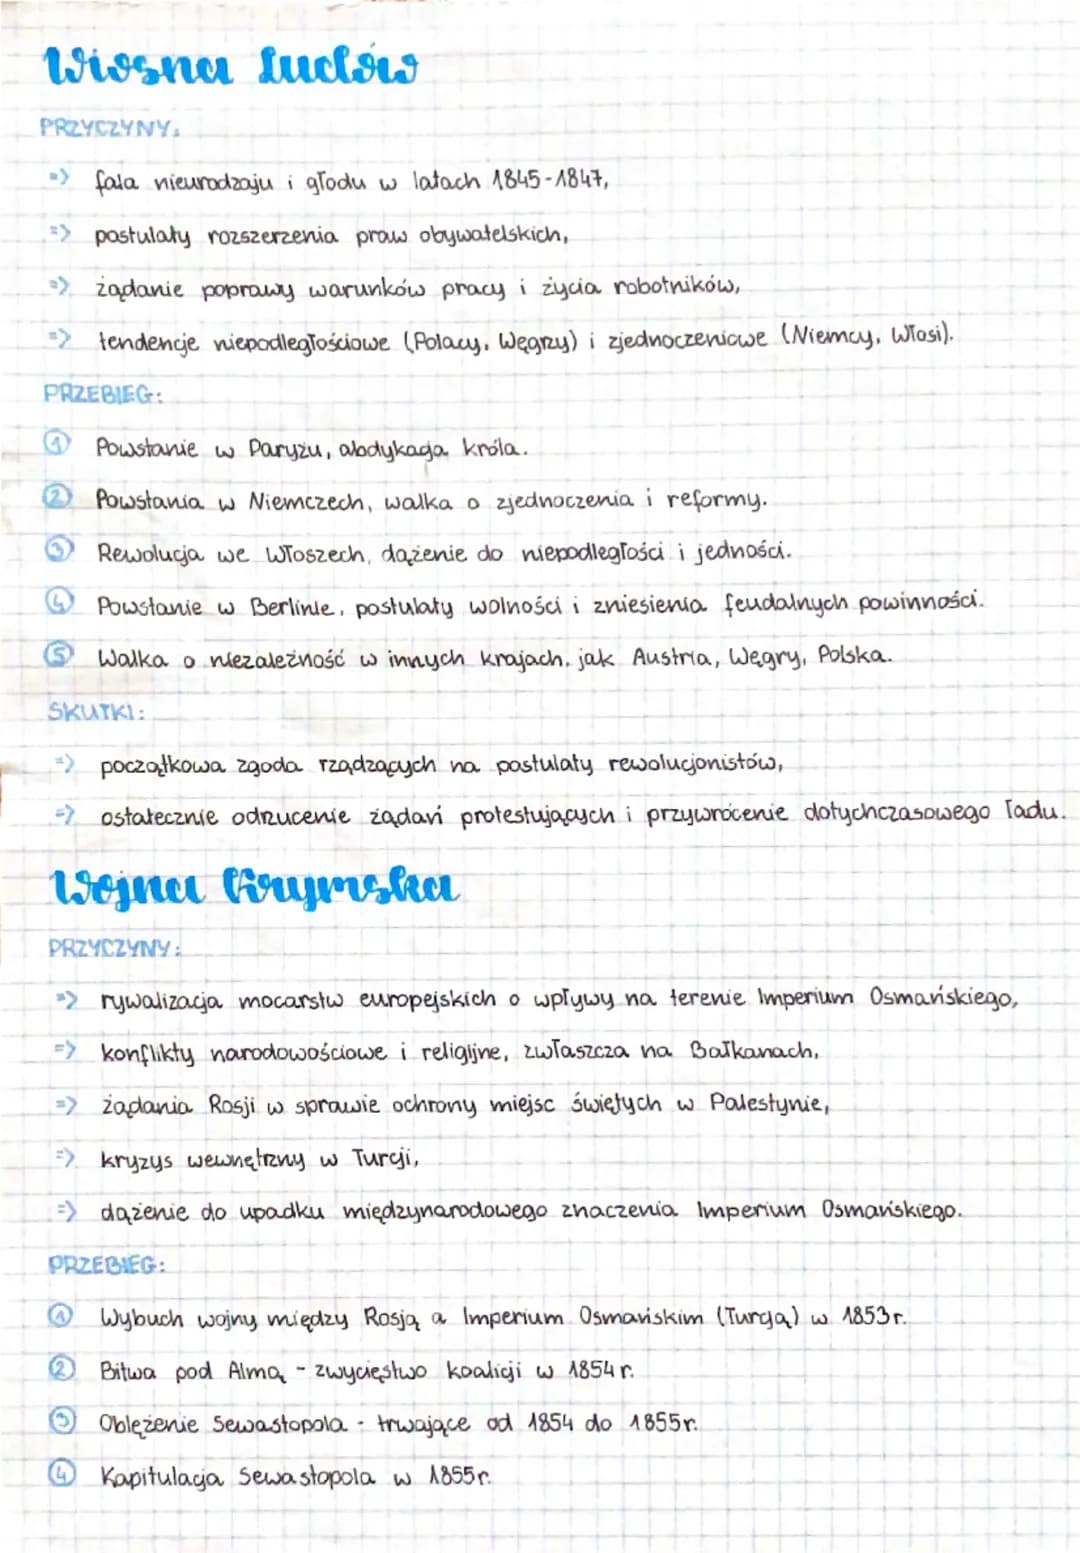 Wiosna Ludów
PRZYCZYNY:
=> fala nieurodzaju i głodu w latach 1845-1847,
=> postulaty rozszerzenia praw obywatelskich,
=> żądanie poprawy warunków pracy i życia robotników,
=> tendencje niepodległościowe (Polacy, Węgrzy) i zjednoczeniowe (Niemcy, Włosi).
PRZEBIEG:
1 Powstanie w Paryżu, abdykacja króla.
2 Powstania w Niemczech, walka o zjednoczenia i reformy.
3 Rewolucja we Włoszech, dążenie do niepodległości i jedności.
4 Powstanie w Berlinie, postulaty wolności i zniesienia feudalnych powinności.
5 Walka o niezależność w innych krajach, jak Austria, Węgry, Polska.
SKUTKI:
=> początkowa zgoda rządzących na postulaty rewolucjonistów,
=> ostatecznie odrzucenie żądań protestujących i przywrócenie dotychczasowego ładu.
Wojna Krymska
PRZYCZYNY:
=> rywalizacja mocarstw europejskich o wpływy na terenie Imperium Osmańskiego,
=> konflikty narodowościowe i religijne, zwłaszcza na Bałkanach,
=> żądania Rosji w sprawie ochrony miejsc świętych w Palestynie,
=> kryzys wewnętrzny w Turcji,
=> dążenie do upadku międzynarodowego znaczenia Imperium Osmańskiego.
PRZEBIEG:
1 Wybuch wojny między Rosją a Imperium Osmańskim (Turcją) w 1853r.
2 Bitwa pod Almą - zwycięstwo koalicji w 1854r.
3 Oblężenie Sewastopola - trwające od 1854 do 1855r.
4 Kapitulacja Sewastopola w 1855r.